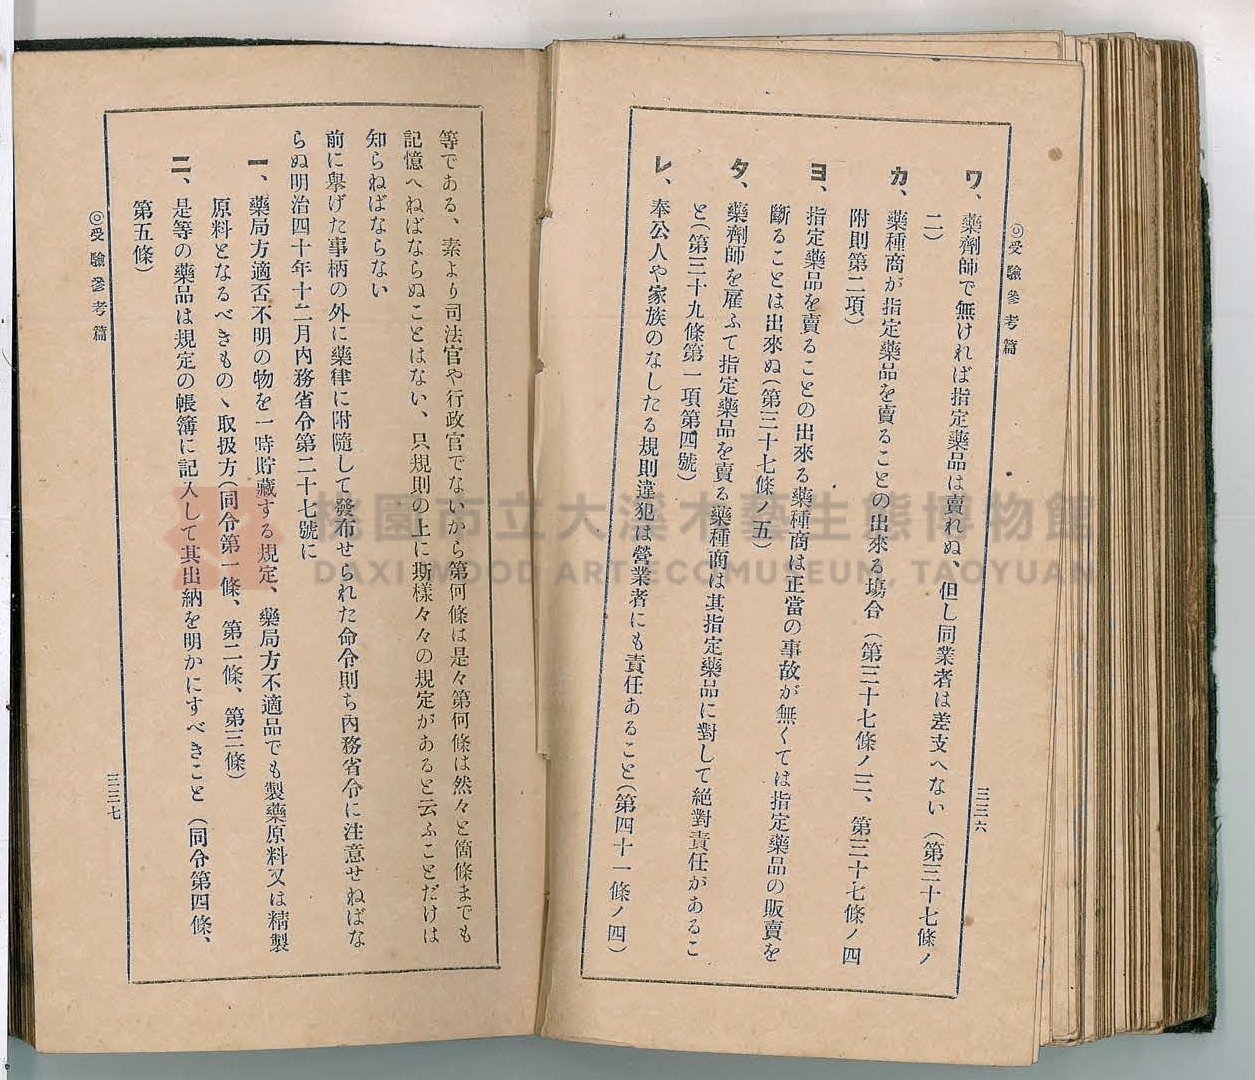 ◎受驗參考篇
三三六
ワ、藥劑師で無ければ指定藥品は賣れぬ、但し同業者は差支へない(第三十七條ノ
二)
カ、藥種商が指定藥品を賣ることの出來る塲合(第三十七條ノ三、第三十七條ノ四
附則第二項)
ヨ、指定藥品を賣ることの出來る藥種商は正當の事故が無くては指定藥品の販賣を
斷ることは出來ぬ(第三十七條ノ五)
タ、藥劑師を雇ふて指定藥品を賣る藥種商は其指定藥品に對して絕對責任があるこ
と(第三十九條第一項第四號)
レ、奉公人や家族のなしたる規則違犯は營業者にも責任あること(第四十一條ノ四)
等である、素より司法官や行政官でないから第何條は是々第何條は然々と箇條までも
記憶へねばならぬことはない、只規則の上に斯樣々々の規定があると云ふことだけは
知らねばならない
前に擧げた事柄の外に藥律に附隨して發布せられた命令則ち內務省令に注意せねばな
らぬ明治四十年十二月內務省令第二十七號に
一、藥局方適否不明の物を一時貯藏する規定、藥局方不適品でも製藥原料又は精製
原料となるべきものヽ取扱方(同令第一條、第二條、第三條)
二、是等の藥品は規定の帳簿に記入して其出納を明かにすべきこと(同令第四條、
第五條)
◎受驗參考篇
三三七
桃園市立大溪木藝生態博物館
DAXI WOOD ART ECOMUSEUM, TAOYUAN